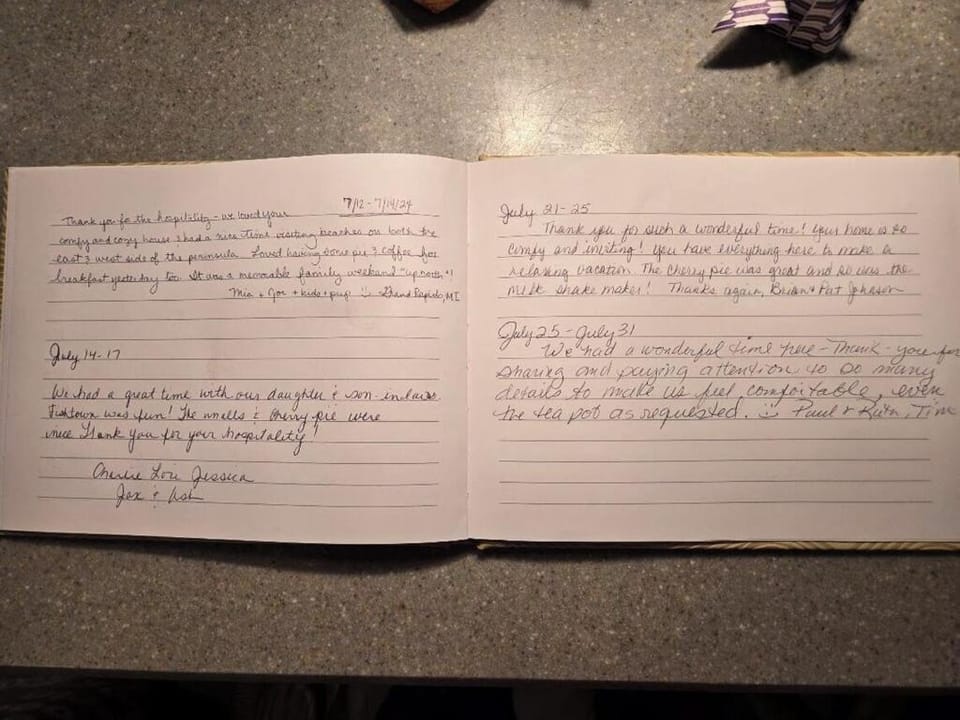 7/12 - 7/14/24
Thank you for the hospitality - we loved your
comfy and cozy house & had a nice time visiting beaches on both the
east & west side of the peninsula. Loved having some pie & coffee for
breakfast yesterday too. It was a memorable family weekend "up north"!
Mia + Joe + kids + pup! Grand Rapids, MI
July 14-17
We had a great time with our daughter & son-in-laws
Fishtown was fun! The smells & cherry pie were
nice Thank you for your hospitality!
Charlie Lori Jessica
Jax & Ash
July 21-25
Thank you for such a wonderful time! Your home is so
comfy and inviting! You have everything here to make a
relaxing vacation. The cherry pie was great and so was the
milk shake maker! Thanks again, Brian & Pat Johnson
July 25 - July 31
We had a wonderful time here - Thank - you for
sharing and paying attention to so many
details to make us feel comfortable, even
the tea pot as requested. :) Paul & Tim